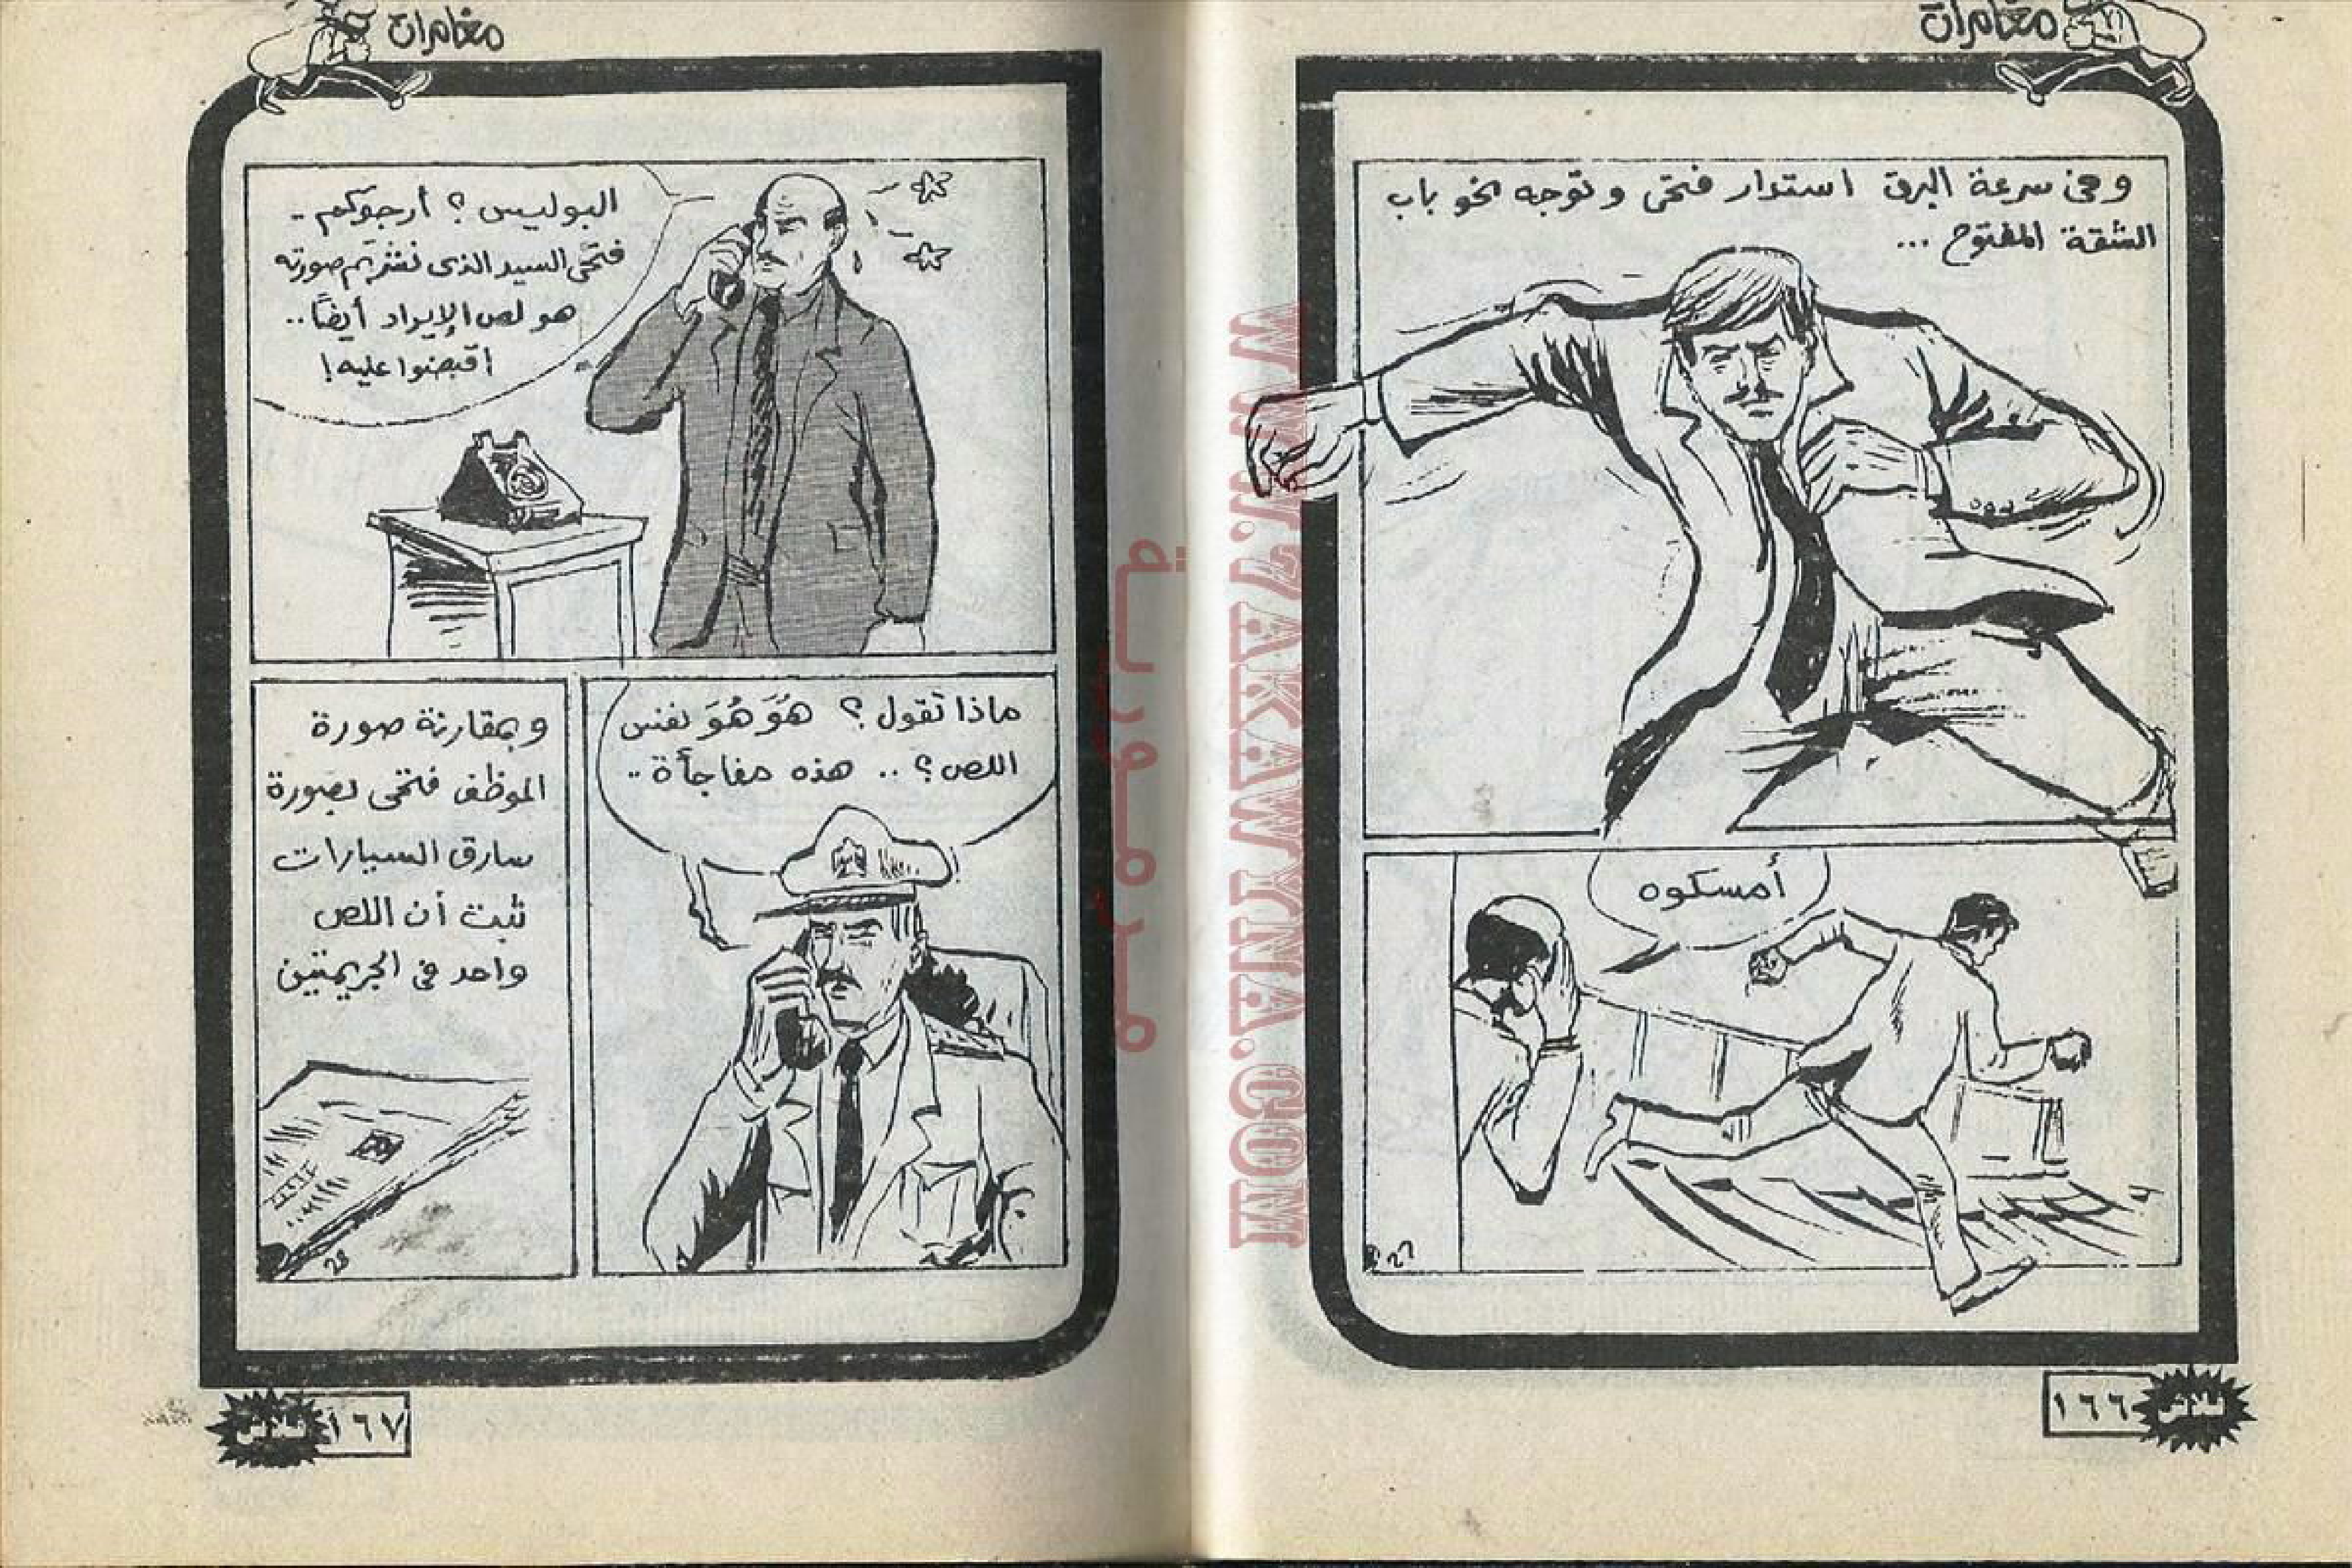 مغامرات
وفى سرعة البرق استدار فتحى وتوجه نحو باب
الشقة المفتوح ...
أمسكوه
27
١٦٦
فلاش
مغامرات
البوليس ؟ أرجوكم ..
فتحى السيد الذى نشرتم صورته
هو لص الإيراد أيضًا ..
اقبضوا عليه !
ماذا تقول ؟ هُوَ هُوَ نفس
اللص ؟ .. هذه مفاجأة ..
وبمقارنة صورة
الموظف فتحى بصورة
سارق السيارات
ثبت أن اللص
واحد فى الجريمتين
28
١٦٧
فلاش
WWW.7AKAWYNA.COM